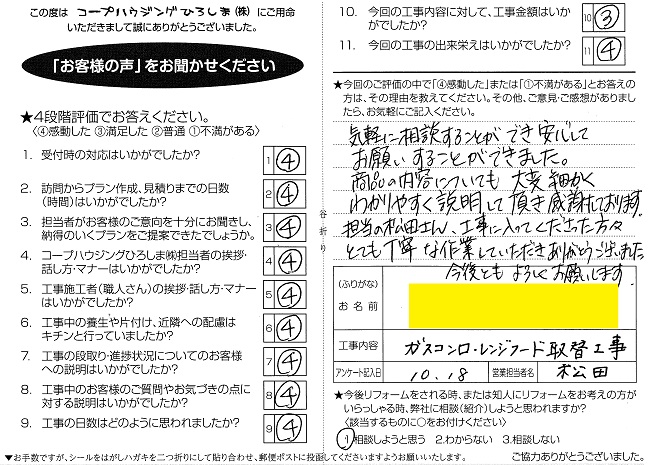 この度は コープハウジングひろしま(株) にご用命
いただきまして誠にありがとうございました。
「お客様の声」をお聞かせください
★4段階評価でお答えください。
〈④感動した ③満足した ②普通 ①不満がある〉
1. 受付時の対応はいかがでしたか?
1 ④
2. 訪問からプラン作成、見積りまでの日数
(時間)はいかがでしたか?
2 ④
3. 担当者がお客様のご意向を十分にお聞きし、
納得のいくプランをご提案できたでしょうか。
3 ④
4. コープハウジングひろしま㈱担当者の挨拶・
話し方・マナーはいかがでしたか?
4 ④
5. 工事施工者(職人さん)の挨拶・話し方・マナー
はいかがでしたか?
5 ④
6. 工事中の養生や片付け、近隣への配慮は
キチンと行っていましたか?
6 ④
7. 工事の段取り・進捗状況についてのお客様
への説明はいかがでしたか?
7 ④
8. 工事中のお客様のご質問やお気づきの点に
対する説明はいかがでしたか?
8 ④
9. 工事の日数はどのように思われましたか?
9 ④
▼お手数ですが、シールをはがしハガキを二つ折りにして貼り合わせ、郵便ポストに投函してくださいますようお願いいたします。
谷折り
10. 今回の工事内容に対して、工事金額はいか
がでしたか?
10 ③
11. 今回の工事の出来栄えはいかがでしたか?
11 ④
★今回のご評価の中で「④感動した」または「①不満がある」とお答えの
方は、その理由を教えてください。その他、ご意見・ご感想がありました
ら、お気軽にご記入ください。
気軽に相談することができ安心して
お願いすることができました。
商品の内容についても 大変細かく
わかりやすく説明して頂き感謝しております。
担当の松田さん、工事に入ってくださった方々
とても丁寧な作業していただきありがとうございました
今後ともよろしくお願いします。
(ふりがな)
お名前
工事内容 ガスコンロ・レンジフード取替工事
アンケート記入日 10.18 営業担当者名 松田
★今後リフォームをされる時、または知人にリフォームをお考えの方が
いらっしゃる時、弊社に相談(紹介)しようと思われますか?
〈該当するものに○をお付けください〉
①相談しようと思う 2.わからない 3.相談しない
ご協力ありがとうございました。